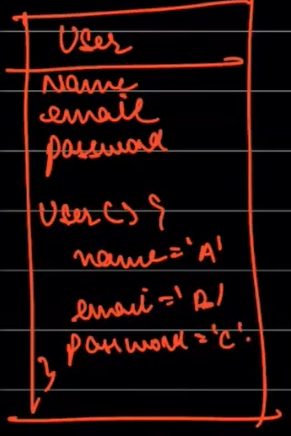 User
Name
email
password
User() {
name='A'
email='B'
password='C'.
}